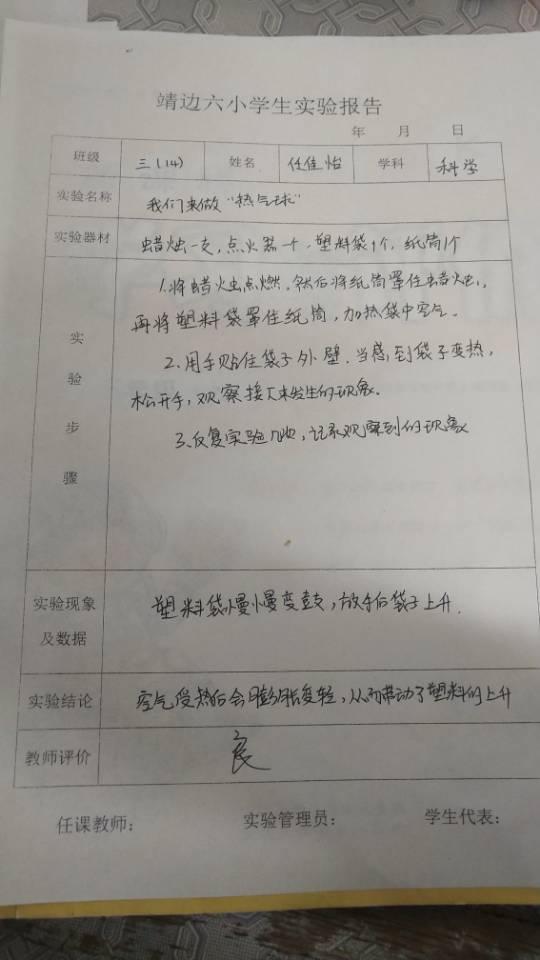 靖边六小学生实验报告
年 月 日
班级 三(14) 姓名 任佳怡 学科 科学
实验名称 我们来做"热气球"
实验器材 蜡烛一支,点火器一个,塑料袋1个,纸筒1个
实验步骤
1.将蜡烛点燃,然后将纸筒罩住蜡烛,
再将塑料袋罩住纸筒,加热袋中空气。
2.用手贴住袋子外壁,当感到袋子变热,
松开手,观察接下来发生的现象。
3.反复实验几次,记录观察到的现象
实验现象及数据 塑料袋慢慢变鼓,放手后袋子上升.
实验结论 空气受热后会膨胀变轻,从而带动了塑料的上升
教师评价 良
任课教师: 实验管理员: 学生代表: